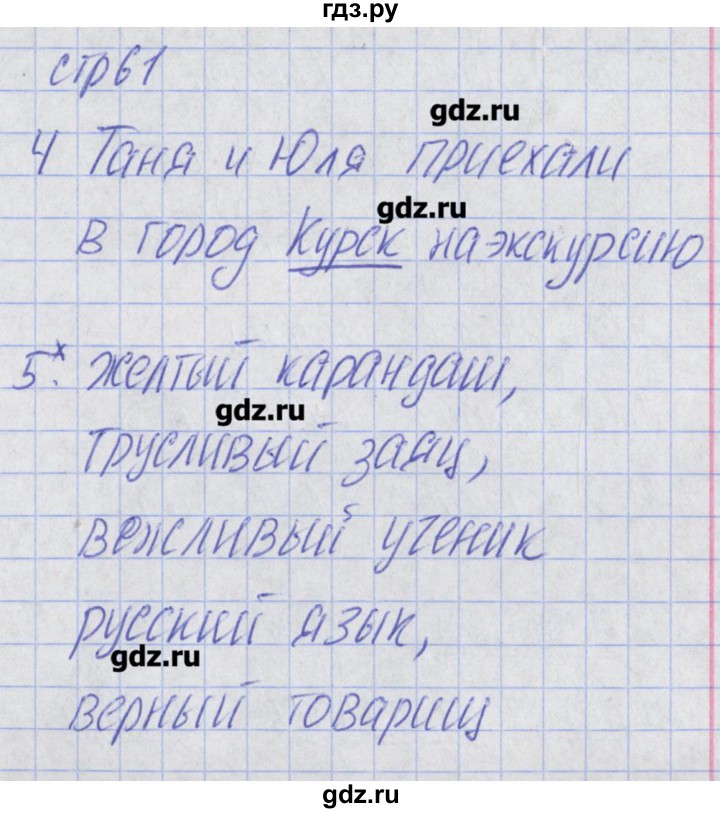 гдз.ру
стр61
gdz.ru
4 Таня и Юля приехали
gdz.ru
в город Курск на экскурсию
5.х желтый карандаш,
gdz.ru
трусливый заяц,
вежливый ученик
русский язык,
gdz.ru
верный товарищ
gdz.ru